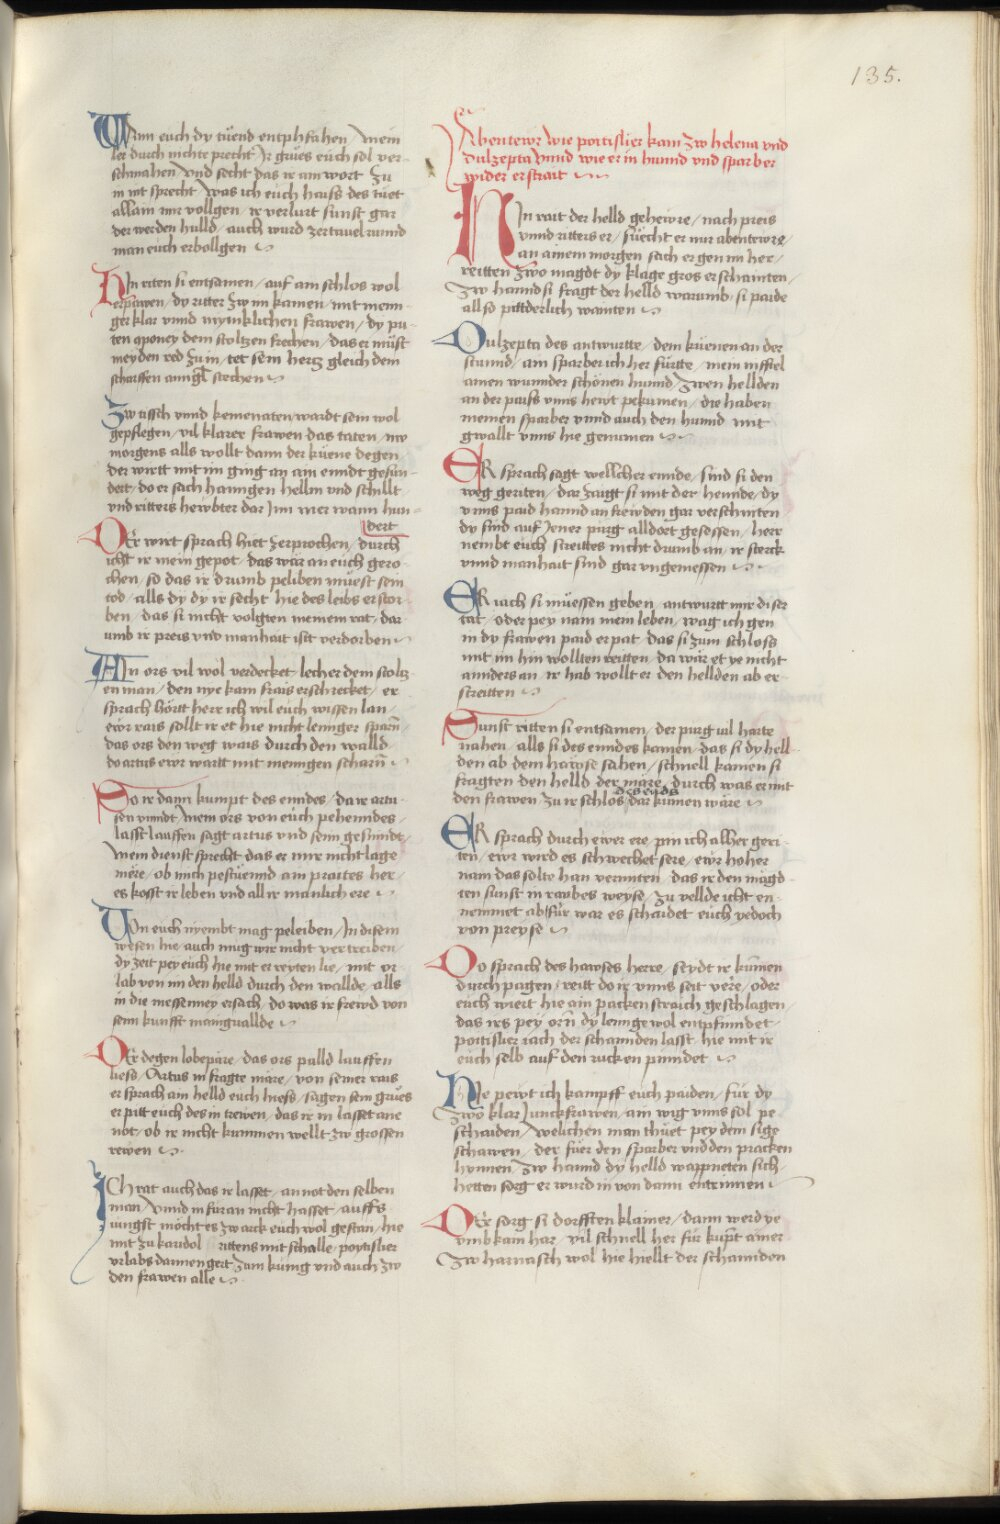 135.
Wann euch dy tüend entphfahen / mein
ler durch nichte precht Ir grües euch sol ver-
schmahen / vnd secht das ir am wort zu
in nit sprecht / was ich euch haiss des tüet
allain mir vollgen / ir verlurt sunst gar
der werden hulld / auch wurd zertauelrunnd
man euch erbollgen
Hin riten si entsamen / auf ain schlos wol
erpawen / dy ritter zw im kamen / mit menn-
ger klar vnnd mynnklichen frawen / dy pu-
ten oponey dem stoltzen frechen / das er müst
meyden red zu in / tet sein hertz gleich dem
scharffen anngl stechen
Zw tissch vnnd kemenaten wardt sein wol
gepflegen / vil klarer frawen das taten / mo
morgens alls wollt dann der küene degen
der wirtt mit im ging an ain enndt gesun-
dert / do er sach hanngen hellm vnd schillt
vnd ritters hewbter dar Inn mer wann hun-
dert
Der wirt sprach hiet zerprochen / durch
icht ir mein gepot / das wär an euch gero-
chen / so das ir drumb peliben müest sein
tod / alls dy dy ir secht hie des leibs erstor-
ben / das si nicht volgten meinem rat / dar
umb ir preis vnd manhait ist verdorben
Ain ors vil wol verdecket / lech er dem stoltz-
en man / den nye kam frais erschrecket / er
sprach hörtt herr ich wil euch wissen lan /
ewr rais sollt ir et hie nicht lennger sparn
das ors den weg wais durch den walld
do artus ewr wartt mit mennigen scharn
So ir dann kumpt des enndes / da ir artu-
sen vinndt / mein ors von euch pehenndes
lasst lauffen sagt artus vnd seim gesinndt
mein dienst sprecht das er mir nicht lage
märe / ob mich pestüennd am praites her /
es kosst ir leben vnd all ir manlich ere
Von euch nyembt mag peleiben / In disem
wesen hie / auch mug wir nicht vertreiben
dy zeit pey euch hie mit er reyten lie / mit vr-
lab von im den helld durch den wallde / alls
in die messenney ersach / do was ir frewd von
seim kunfft manigvallde
Der degen lobepäre / das ors palld lauffen
liess / Artus in fragte märe / von seiner rais
er sprach am helld euch hiess / sagen sein grües
er pitt euch des in trewen / das ir in lasset ane
not / ob ir nicht kummen wellt zw grossen
rewen
Ich rat auch das ir lasset / an not den selben
man / vnnd in füran nicht hasset / auffs
iungst möcht es zwarck euch wol gestan / hie
mit zu karidol rittens mit schalle / poytislier
vrlabs dannen gert zum kunig vnd auch zw
den frawen alle
Abentewr wie poitislier kam zw helena vnd
dulzepta vnnd wie er in hunnd vnd sparber
wider erstrait
Hin rait der helld gehewre / nach preis
vnnd ritters er / süecht er nur abentewre /
an ainem morgen sach er gen im her /
reitten zwo magdt dy klage gros erschainten /
zw hannd si fragt der helld warumb / si paide
allso pitterlich wainten
Dulzepta des antwurtte / dem küenen an der
stunnd / am sparber ich her fürtte / mein nifftel
ainen wunnder schönen hunnd / zwen hellden
an der paiss vnns hewt pekumen / die haben
meinen sparber vnnd auch den hunnd mit
gwallt vnns hie genumen
Er sprach sagt wellicher ennde / sind si den
weg geriten / dar zaigt si mit der hennde / dy
vnns paid hannd an frewden gar verschniten
dy sind auf Jener purg alldort gesessen / herr
nembt euch streittes nicht drumb an / ir sterck
vnnd manhait sind gar vngemessen
Er iach si müessen geben / antwurtt mir diser
tat / oder pey nam mein leben / wag ich gen
in dy frawen paid er pat / das si zum schloss
mit im hin wollten reitten / da wär et ye nicht
annders an / ir hab wollt er den hellden ab er-
streitten
Sunst ritten si entsamen / der purg vil harte
nahen / alls si des enndes kamen / das si dy hell-
den ab dem hawse sahen / schnell kamen si
fragten den helld der märe / durch was er mit
den frawen zu ir schlos des ends dar kumen wäre
Er sprach durch ewer ere / pin ich allher geri-
ten / ewr wird es schwechet sere / ewr hoher
nam das solte han vermiten / das ir den mägd-
ten sunst in raubes weyse / zu vellde icht en-
nemmet / abfür war es schaidet euch yedoch
von preyse
Do sprach des hawses herre / seydt ir kumen
durch pagen / reitt do ir vnns seit verre / oder
euch wiert hie ain packen straich geschlagen /
das irs pey orn dy lennge wol entpfinndet
poitislier iach der schannden lasst / hie mit ir
euch selb auf den rucken pinndet
Hie pewt ich kampff euch paiden / für dy
zwo klar Junckfrawen / ain wig vnns sol pe-
schaiden / welichen man thüet pey dem sige
schawen / der füer den sparber vnd den pracken
hynnen / zw hannd dy helld wappneten sich /
hetten sorg er wurd in von dann entrinnen
Der sorg si dorfften klainer / dann werd ye
vmb kam har / vil schnell her für kupt ainer
zw harnasch wol hie hiellt der schannden